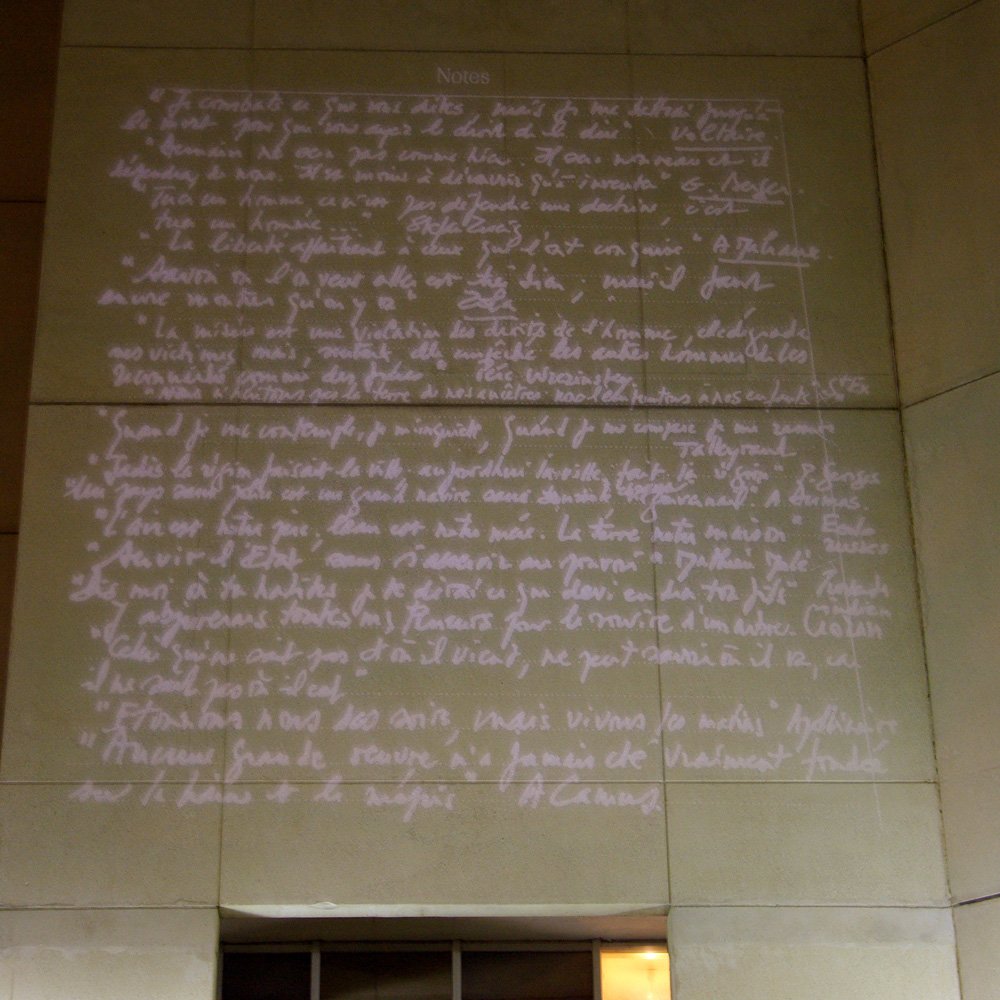 Notes
" Je combats ce que vous dites, mais je me battrai jusqu'à
la mort pour que vous ayez le droit de le dire" Voltaire.
" Demain ne sera pas comme hier. Il sera nouveau et il
dépendra de nous. Il est moins à découvrir qu'à inventer" G. Berger.
Tuer un homme ce n'est pas défendre une doctrine, c'est
tuer un homme..." Stefan Zweig
" La liberté appartient à ceux qui l'ont conquise " A Malraux.
" Savoir où l'on veut aller, est très bien ; mais il faut
encore montrer qu'on y va " Zola
" La misère est une violation des droits de l'homme, elle dégrade
nos victimes mais, mutile, elle empêche les autres hommes de les
reconnaître comme des frères " Père Wresinsky
" nous n'héritons pas la terre de nos ancêtres nous l'empruntons à nos enfants " St Ex
" Quand je me contemple, je m'inquiète, quand je me compare je me rassure
Talleyrand
" Jadis la région faisait la ville aujourd'hui la ville fait la région "
" Un pays sans est un grand navire sans gouvernail". A Dumas
" L'air est notre père, l'eau est notre mère. La terre notre maison "
" Servir l'Etat, sans s'asservir au pouvoir "
" Dis moi à te habites je te dirai ce que deviendra ton fils "
" J'abjurerais toutes mes Pensées pour le sourire d'un autre. Cioran
" Celui qui ne sait pas d'où il vient, ne peut savoir où il va, car
il ne sait pas où il est "
" Etonnons nous des soirs, mais vivons les matins " Apollinaire
" Aucune grande oeuvre n'a jamais été vraiment fondée
sur la haine et le mépris " A Camus.